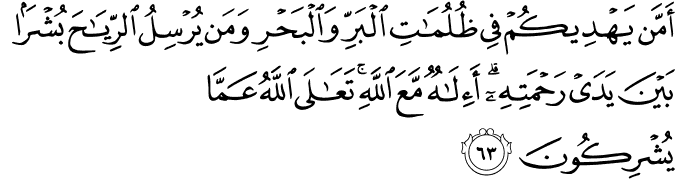 أَمَّن يَهْدِيكُمْ فِي ظُلُمَٰتِ ٱلْبَرِّ وَٱلْبَحْرِ وَمَن يُرْسِلُ ٱلرِّيَٰحَ بُشْرًۢا
بَيْنَ يَدَىْ رَحْمَتِهِۦٓ ۗ أَءِلَٰهٌ مَّعَ ٱللَّهِ ۚ تَعَٰلَى ٱللَّهُ عَمَّا
يُشْرِكُونَ ٦٣